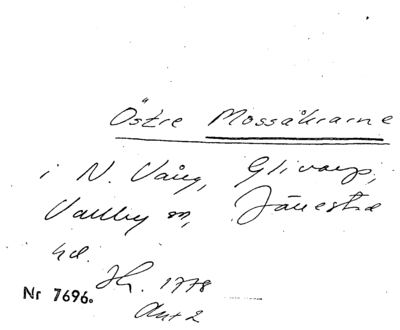 Östre Mossåkrarne
i N. Vång, Glivarp,
Vallby sn, Järrestad
hd.
Sk. 1778
Nr 7696.
Akt 2